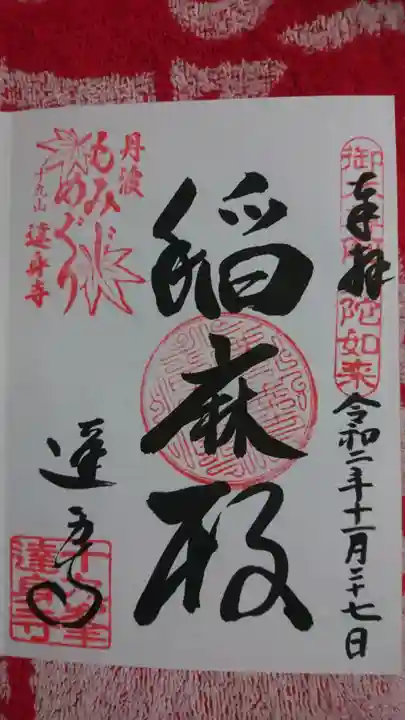 御本尊阿弥陀如来
奉拝
令和二年十一月二十七日
稲麻殿
丹波
もみじめぐり
十九山 達身寺
達身寺